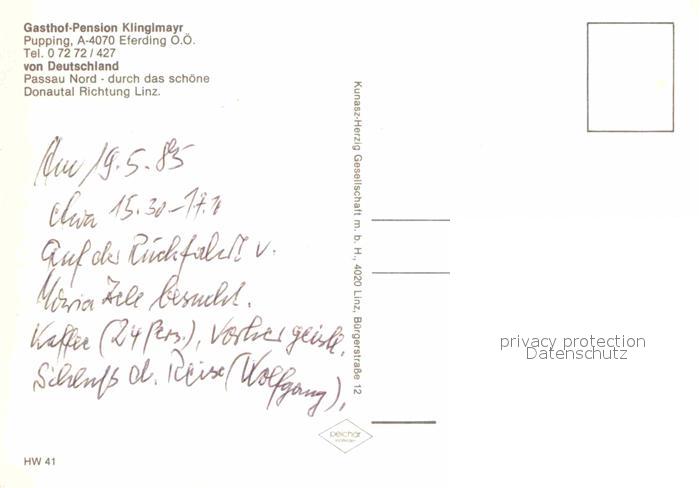 Gasthof-Pension Klinglmayr
Pupping, A-4070 Eferding O.Ö.
Tel. 0 72 72 / 427
von Deutschland
Passau Nord - durch das schöne
Donautal Richtung Linz.
Am 19.5.85
etwa 15.30-17.
Auf der Rückfahrt v.
Maria Zell besucht.
Kaffee (24 Pers.), Vorher geistl.
Schluß d. Reise (Wolfgang),
Kunasz-Herzig Gesellschaft m. b. H., 4020 Linz, Bürgerstraße 12
privacy protection
Datenschutz
peichär
HW 41